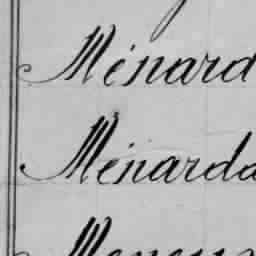 Ménard
Ménarda